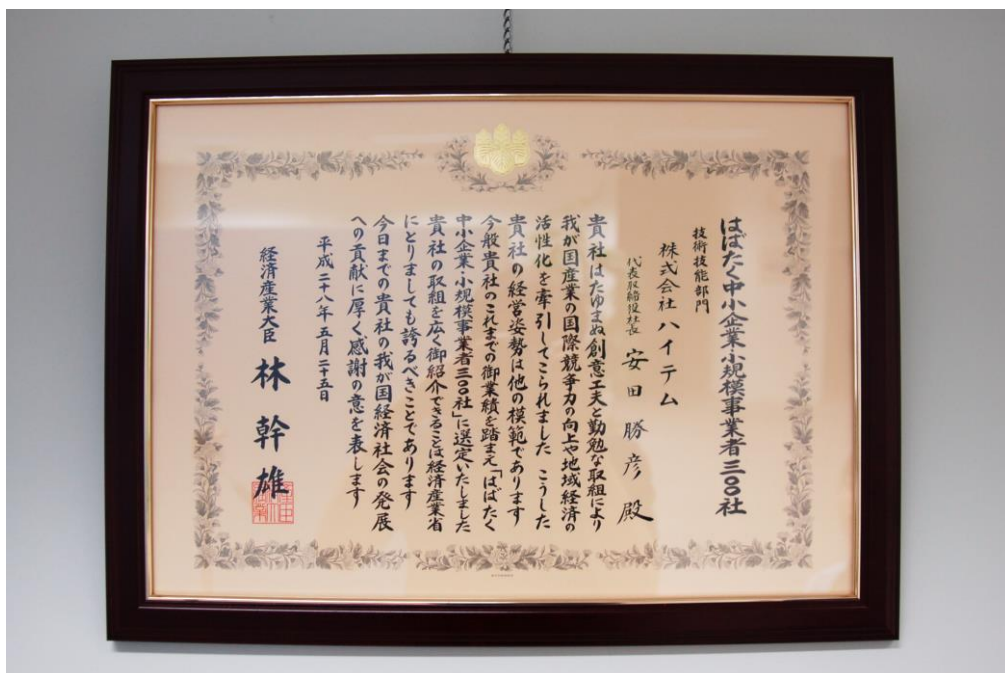 はばたく中小企業・小規模事業者三〇〇社
技術技能部門
株式会社ハイテム
代表取締役社長 安田勝彦 殿
貴社はたゆまぬ創意工夫と勤勉な取組により
我が国産業の国際競争力の向上や地域経済の
活性化を牽引してこられました こうした
貴社の経営姿勢は他の模範であります
今般貴社のこれまでの御業績を踏まえ「はばたく
中小企業・小規模事業者三〇〇社」に選定いたしました
貴社の取組を広く御紹介できることは経済産業省
にとりましても誇るべきことであります
今日までの貴社の我が国経済社会の発展
への貢献に厚く感謝の意を表します
平成二十八年五月二十五日
経済産業大臣 林幹雄